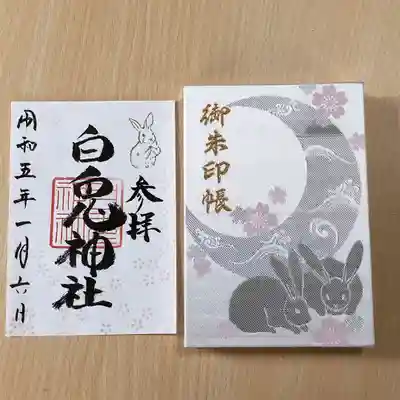 参拝
白兎神社
令和五年一月六日
御朱印帳